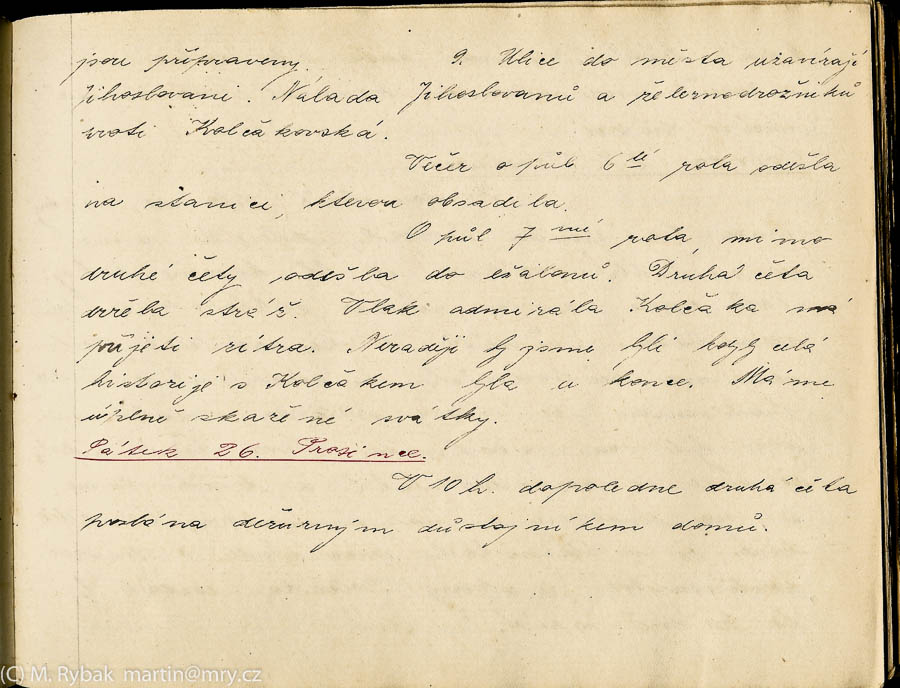 jsou připraveny. 9. Ulice do města uzavírají
Jihoslované. Nálada Jihoslovanů a železnodrožníků
proti Kolčákovská.
Večer o půl 6 té rota odešla
na stanici, kterou obsadila.
O půl 7 mé rota, mimo
druhé čety odešla do ešalonů. Druhá četa
držela stráž. Vlak admirála Kolčáka má
přijeti zítra. Neraději by jsme byli kdyby celá
historije s Kolčákem byla u konce. Máme
úplně skažené svátky.
Pátek 26. Prosince.
V 10 h. dopoledne druhá četa
poslána dežurným důstojníkem domů.
(C) M. Rybak martin@mry.cz